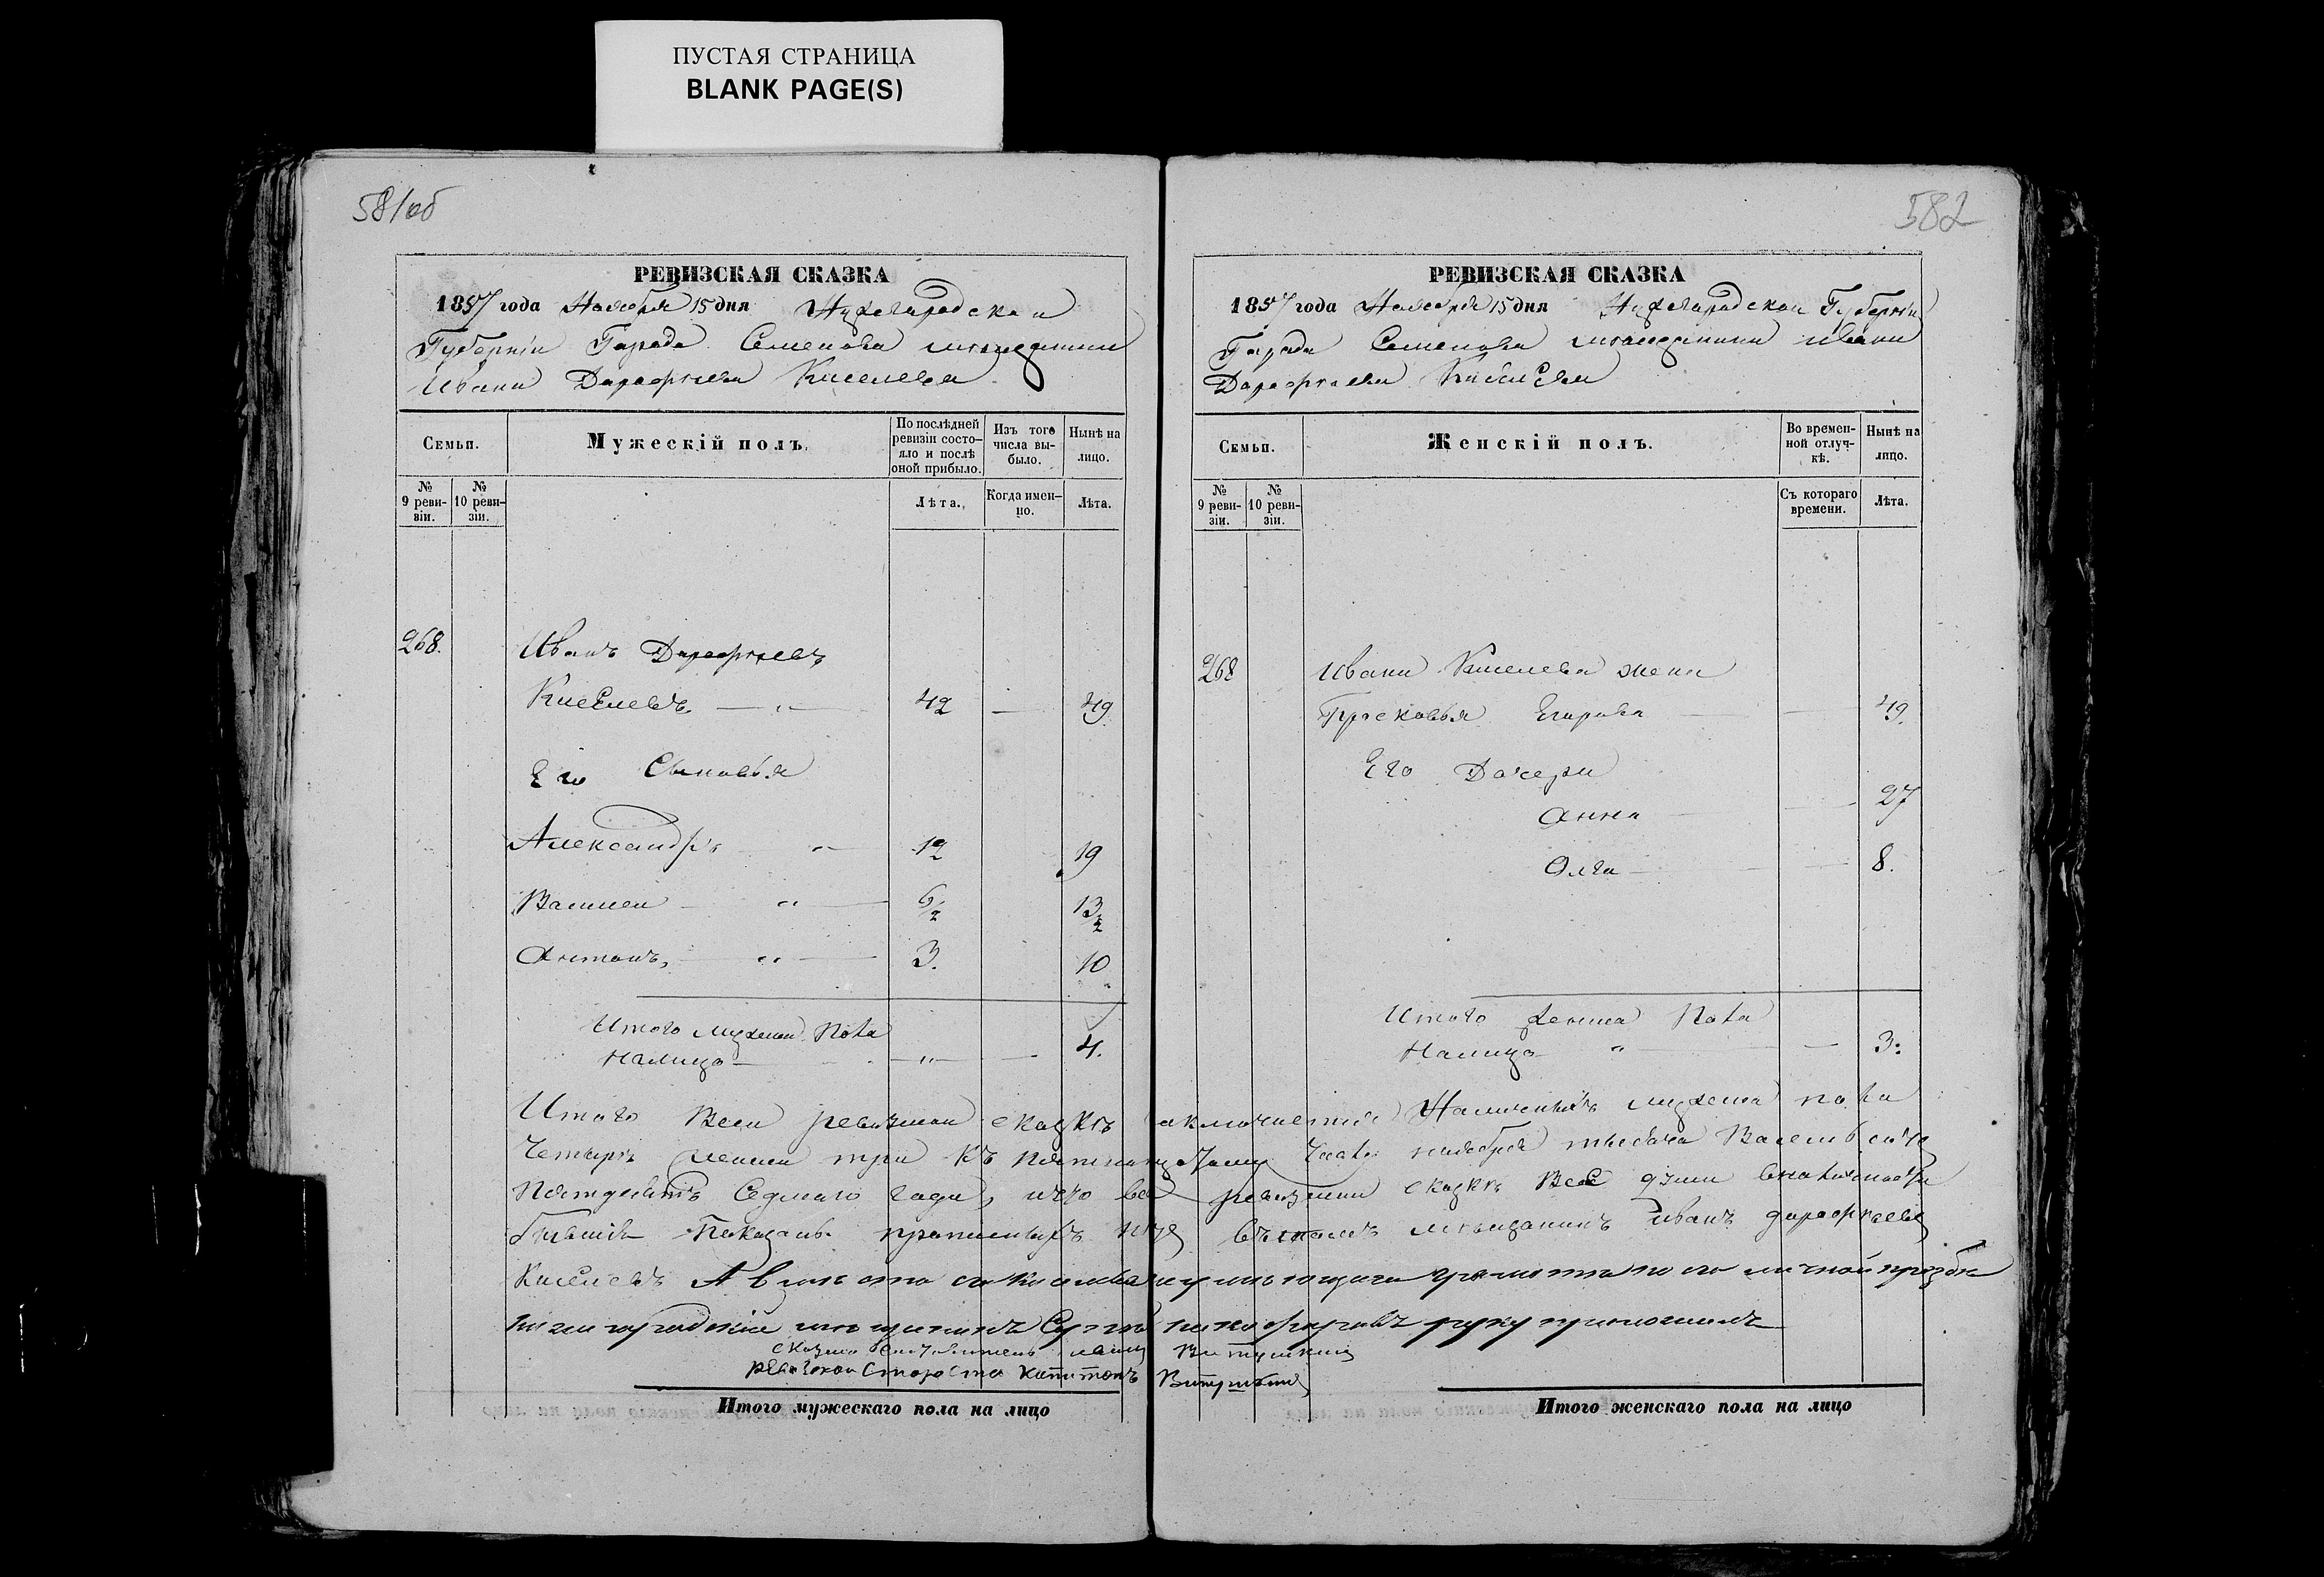 ПУСТАЯ СТРАНИЦА
BLANK PAGE(S)
581об
РЕВИЗСКАЯ СКАЗКА
1857 года Ноября 15 дня Нижегородской
Губерніи Города Семенова мещанина
Ивана Дорофеева Киселева
Семьи.
Мужескій полъ.
По послѣдней ревизіи состояло и послѣ оной прибыло.
Изъ того числа выбыло.
Нынѣ на лицо.
№ 9 ревизіи.
№ 10 ревизіи.
Лѣта.
Когда именно.
Лѣта.
268. Иванъ Дорофеевъ
Киселевъ 42 — 49
Его Сыновья
Александръ 12 19
Василей 6/2 13/2
Антонъ, 3. 10
Итого мужеска Пола
Налицо 4.
582
РЕВИЗСКАЯ СКАЗКА
1857 года Ноября 15 дня Нижегородской Губерніи
Города Семенова мещанина Ивана
Дорофеева Киселева
Семьи.
Женскій полъ.
Во временной отлучкѣ.
Нынѣ на лицо.
№ 9 ревизіи.
№ 10 ревизіи.
Съ котораго времени.
Лѣта.
268 Ивана Киселева жена
Прасковья Егорова 49.
Его Дочери
Анна 27
Олга 8.
Итого женска Пола
Налицо 3.
Итого Всей ревизской сказкѣ заключается Наличныхъ мужеска пола
Четыре женска три къ пятнатцатому Число ноября тысяча Васемсотъ
Пятдесятъ Седмаго года, что въ ревизской сказкѣ Все души
Показаны прописныхъ нѣтъ мѣщанинъ Иванъ Дорофеевъ
Киселевъ А вместо его неумеющаго грамоте по его личной прозбе
нижегородскій мещанинъ руку приложилъ
Староста Капитонъ Витушкинъ
Итого мужескаго пола на лицо
Итого женскаго пола на лицо